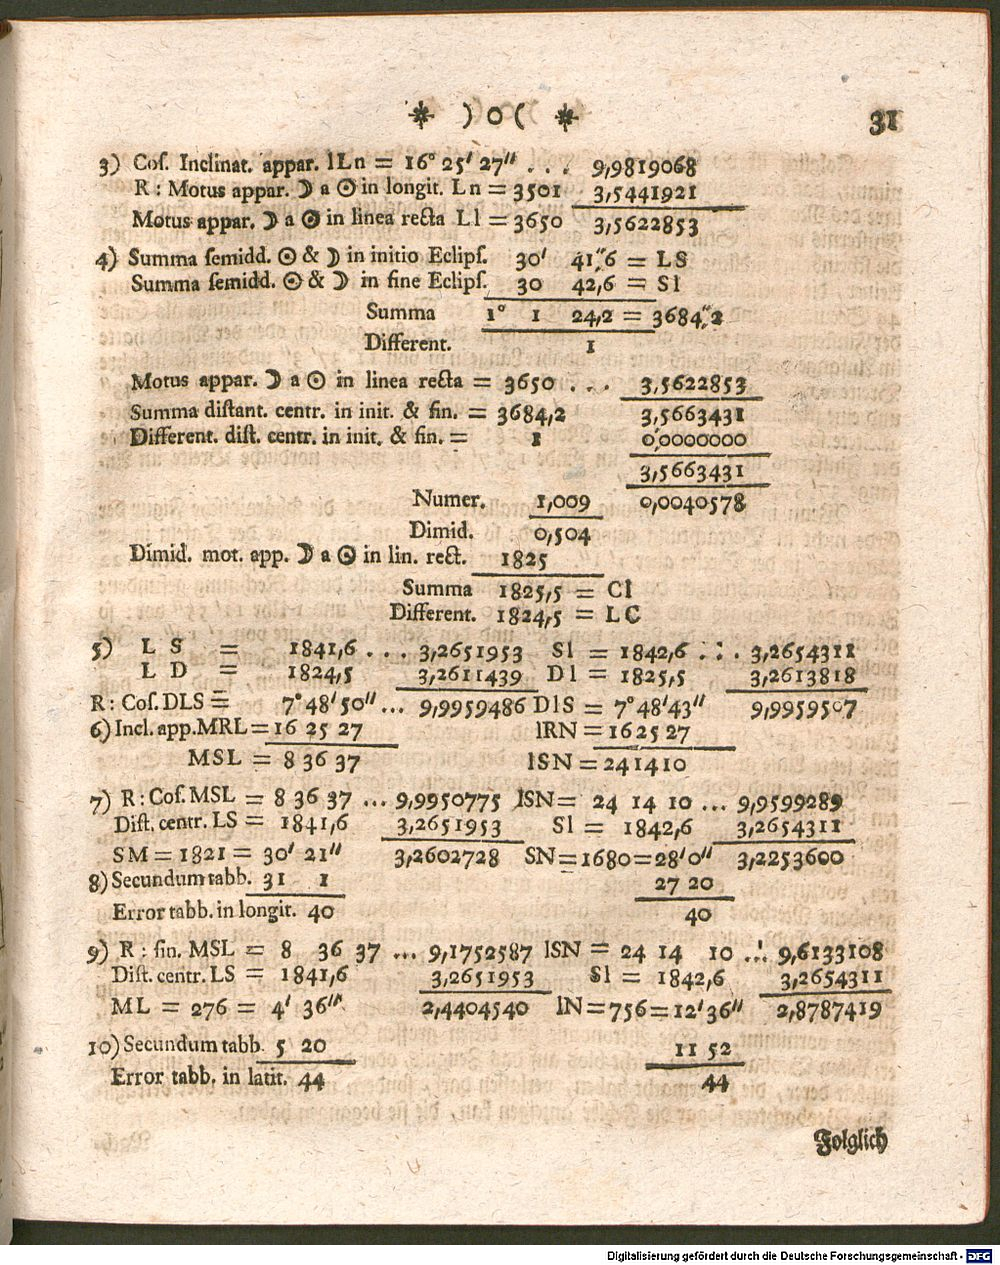 * ) o ( * 31
3) Coſ. Inclinat. appar. lLn = 16° 25′ 27″ . . . 9,9819068
R : Motus appar. ☽ a ☉ in longit. Ln = 3501 3,5441921
Motus appar. ☽ a ☉ in linea recta Ll = 3650 3,5622853
4) Summa ſemidd. ☉ & ☽ in initio Eclipſ. 30′ 41″,6 = LS
Summa ſemidd. ☉ & ☽ in fine Eclipſ. 30 42,6 = Sl
Summa 1° 1 24,2 = 3684″,2
Different. 1
Motus appar. ☽ a ☉ in linea recta = 3650 . . . 3,5622853
Summa diſtant. centr. in init. & fin. = 3684,2 3,5663431
Different. diſt. centr. in init. & fin. = 1 0,0000000
3,5663431
Numer. 1,009 0,0040578
Dimid. 0,504
Dimid. mot. app. ☽ a ☉ in lin. rect. 1825
Summa 1825,5 = Cl
Different. 1824,5 = LC
5) L S = 1841,6 . . . 3,2651953 Sl = 1842,6 . . . 3,2654311
L D = 1824,5 3,2611439 Dl = 1825,5 3,2613818
R : Coſ. DLS = 7° 48′ 50″ ... 9,9959486 DlS = 7° 48′ 43″ 9,9959507
6) Incl. app. MRL = 16 25 27 lRN = 16 25 27
MSL = 8 36 37 lSN = 24 14 10
7) R : Coſ. MSL = 8 36 37 ... 9,9950775 lSN = 24 14 10 ... 9,9599289
Diſt. centr. LS = 1841,6 3,2651953 Sl = 1842,6 3,2654311
SM = 1821 = 30′ 21″ 3,2602728 SN = 1680 = 28′ 0″ 3,2253600
8) Secundum tabb. 31 1 27 20
Error tabb. in longit. 40 40
9) R : ſin. MSL = 8 36 37 ... 9,1752587 lSN = 24 14 10 ... 9,6133108
Diſt. centr. LS = 1841,6 3,2651953 Sl = 1842,6 3,2654311
ML = 276 = 4′ 36″ 2,4404540 lN = 756 = 12′ 36″ 2,8787419
10) Secundum tabb. 5 20 11 52
Error tabb. in latit. 44 44
Folglich
Digitalisierung gefördert durch die Deutsche Forschungsgemeinschaft - DFG